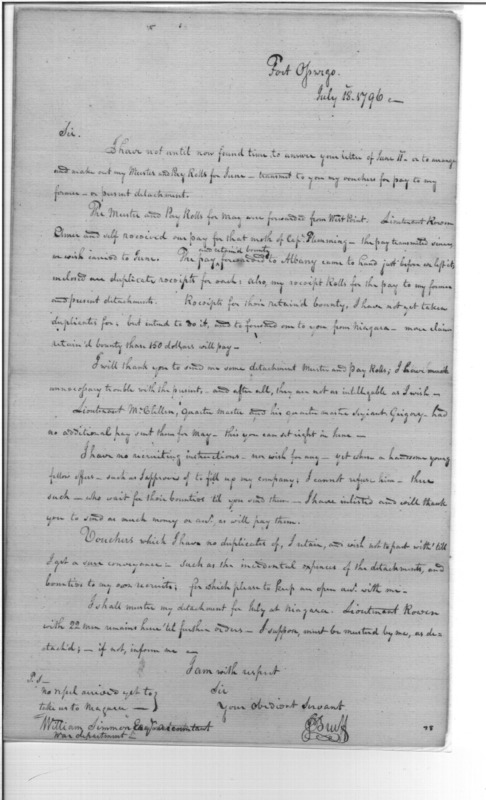 Fort Oswego.
July 18. 1796
Sir.
I have not until now found time to answer your letter of June 11. or to arrange
and make out my Muster and Pay Rolls for June - transmit to you my vouchers for pay to my
former - or present detachment.
The Muster and Pay Rolls for May were forwarded from West Point. Lieutenant Rowen
Elmer and self received our pay for that month of Cap. Flemming - the pay transmitted
as with carried to June. The pay and retained bounty forwarded to Albany came to hand just before we left it,
inclosed are duplicate receipts for each; also, my receipt Rolls for the pay to my former
and present detachments. Receipts for their retain'd bounty, I have not yet taken
duplicates for; but intend to do it, and to forward one to you from Niagara - more claim
retain'd bounty than 150 dollars will pay -
I will thank you to send me some detachment Muster and Pay Rolls; I have much
unnecessary trouble with the present, - and after all, they are not as intelligable as I wish -
Lieutenant McClallen, Quarter Master and his quarter master Serjeant Grigory - had
no additional pay sent them for May - this you can set right in June -
I have no recruiting instructions - nor wish for any - yet when a handsome young
fellow offers - such as I approve of to fill up my company, I cannot refuse him - three
such - who wait for their bounties 'til you send them - I have inlisted and will thank
you to send as much money or as will pay them.
Vouchers which I have no duplicates of, I retain, and wish not to part with 'till
I get a sure conveyance - such as the incidental expences of the detachments, and
bounties to my own recruits; for which please to keep an open with me -
I shall muster my detachment for July at Niagara. Lieutenant Rowen
with 22 men remains here 'til further orders - I suppose, must be mustered by me, as de-
tachd; - if not, inform me -
I am with respect
P.S -
no vessel arrived yet to
take us to Niagara -
Sir
Your Obedient Servant
William Simmons Esqr accountant
War department
78